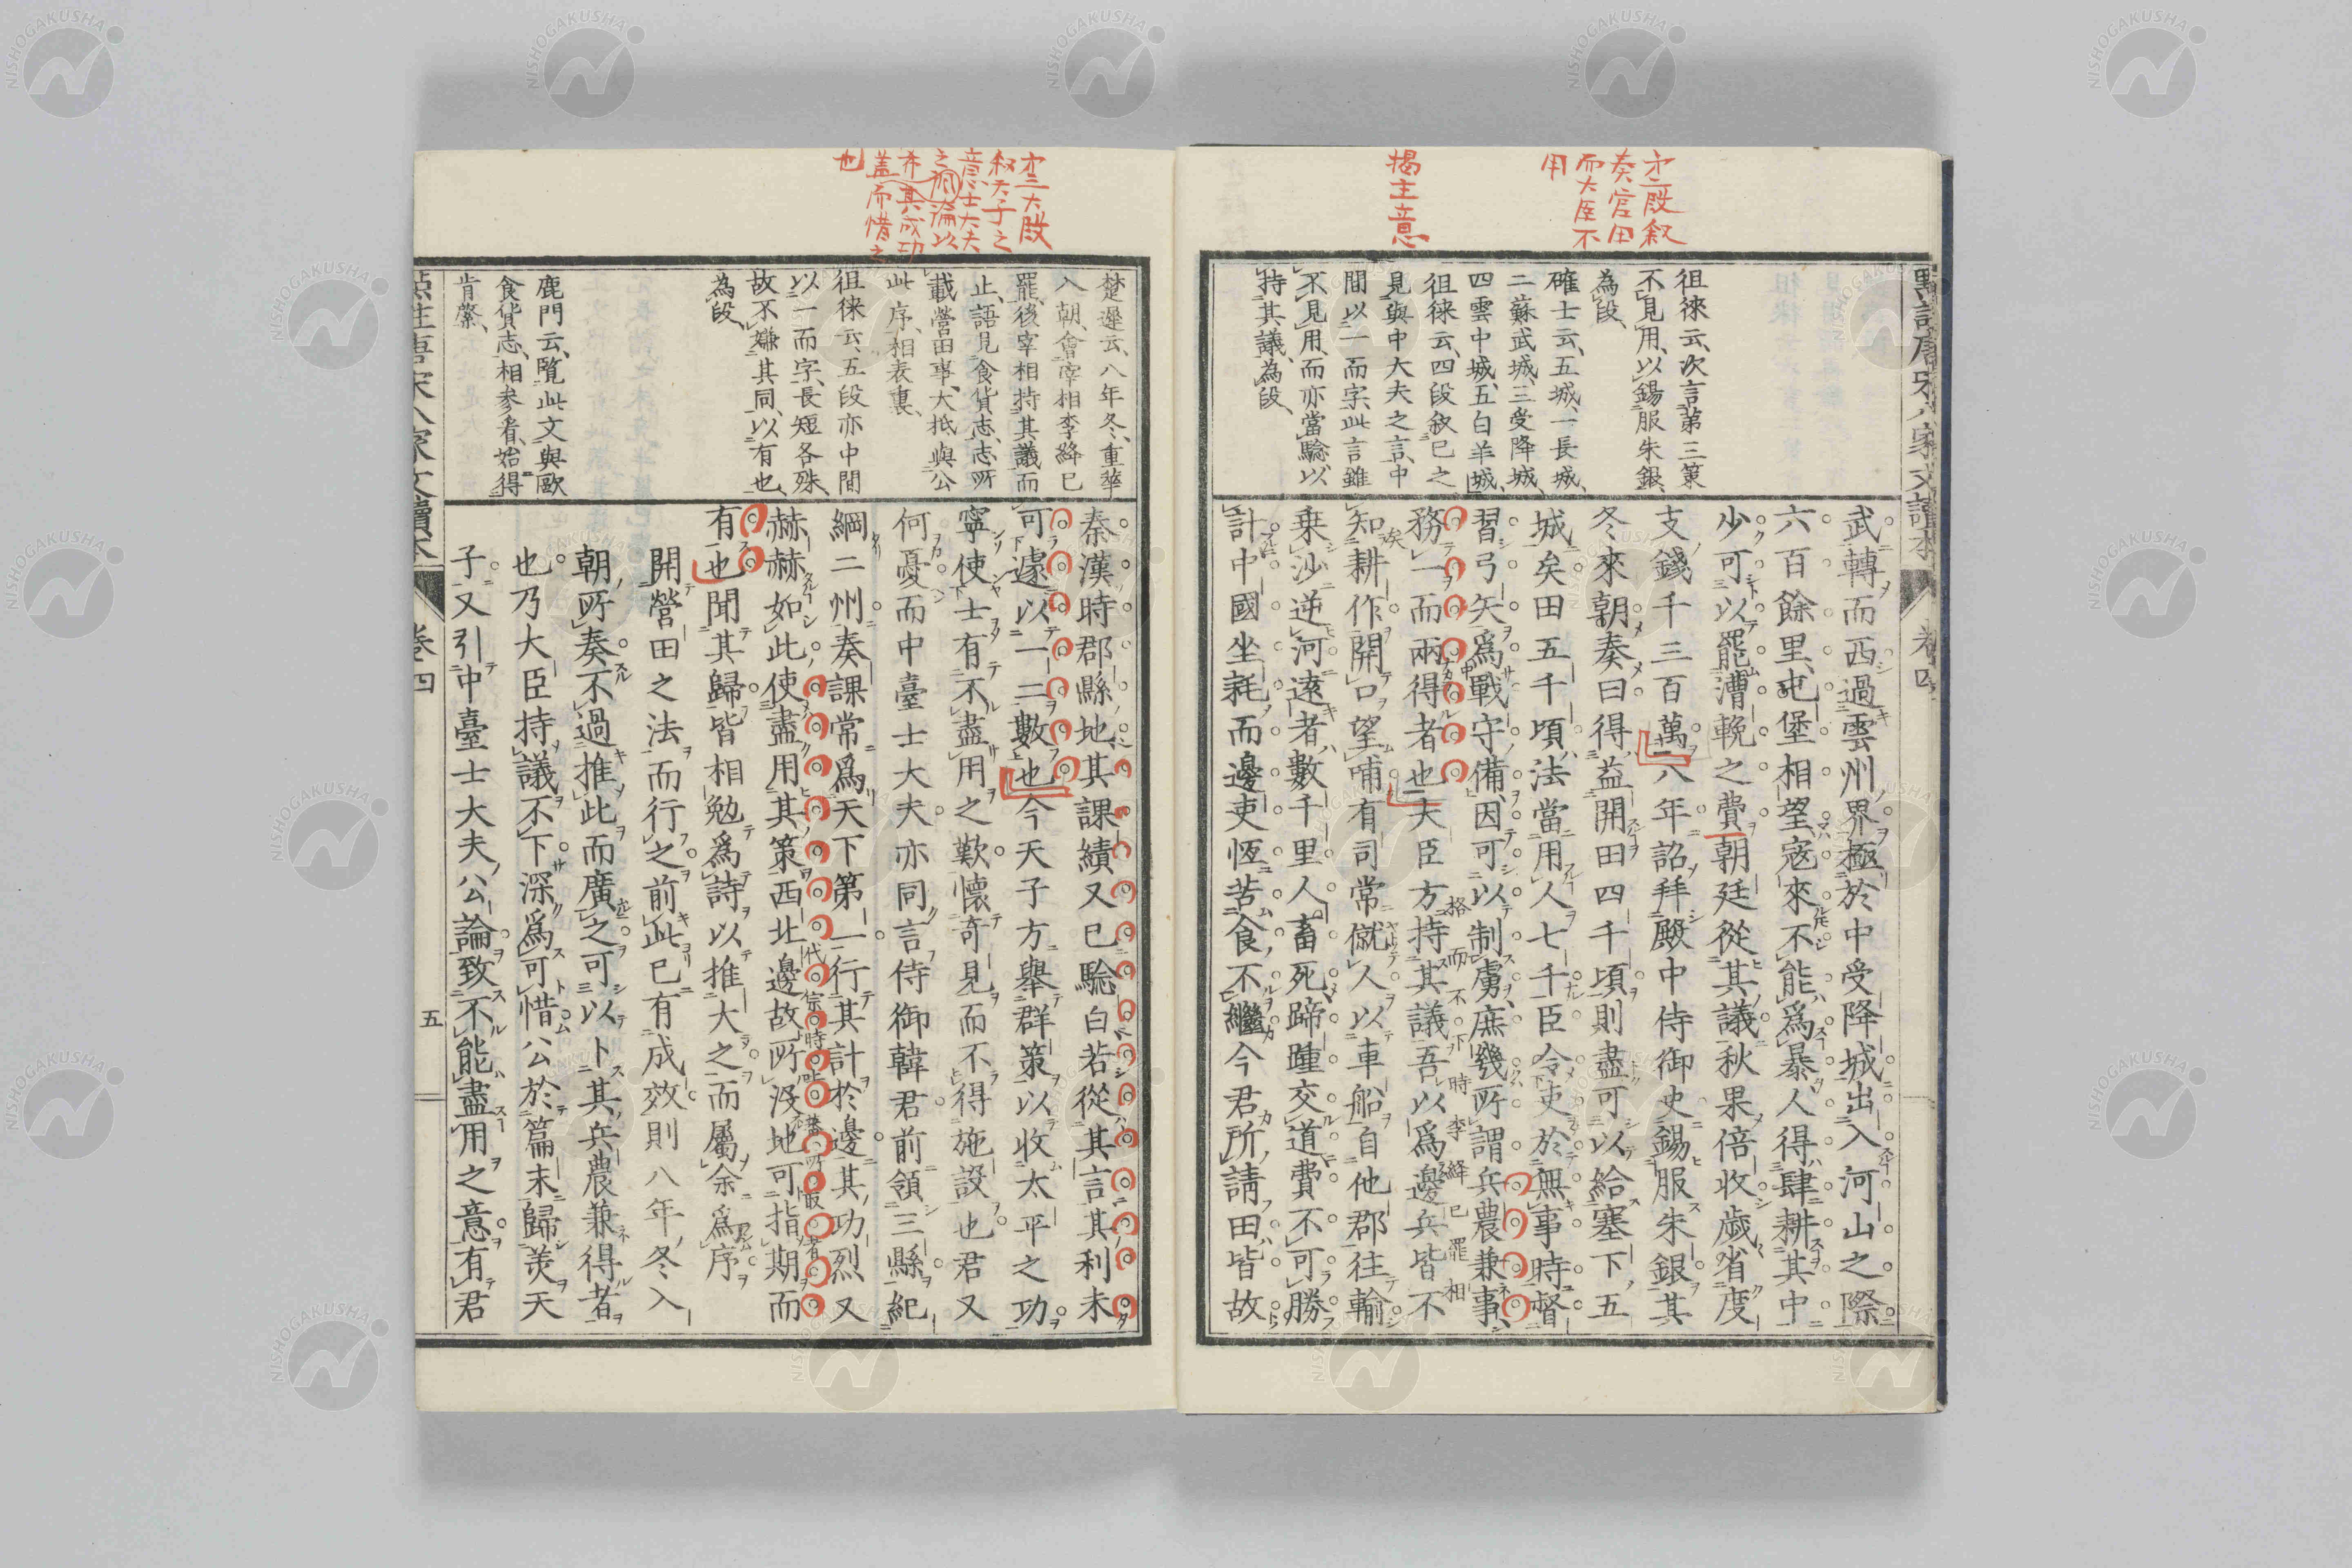 才二段叙
奏官田
而大臣不
用
揭主意
徂徠云、次言第三策
不見用、以錫服朱銀、
為段、
確士云、五城、一長城、
二蘇武城、三受降城、
四雲中城、五白羊城、
徂徠云、四段敘已之
見與中大夫之言、中
間以一而字、此言雖
不見用、而亦當驗、以
持其議、為段、
武轉而西過雲州界極於中受降城出入河山之際
六百餘里、屯堡相望、寇來不能為暴人得肆耕其中
少可以罷漕輓之費朝廷從其議秋果倍收歲省度
支錢千三百萬八年詔拜殿中侍御史錫服朱銀其
冬來朝奏曰得益開田四千頃則盡可以給塞下五
城矣田五千頃法當用人七千臣令吏於無事時督
習弓矢爲戰守備、因可以制虜、庶幾所謂兵農兼事、
務一而兩得者也大臣方持其議吾以爲邊兵皆不
格而不下時李絳已罷相
知耕作開口望哺有司常僦人以車船自他郡往輸
乘沙逆河遠者數千里人畜死蹄踵交道費不可勝
計中國坐耗而邊吏恆苦食不繼今君所請田皆故
點註唐宋八家文讀本 卷四
才三大段
叙天子之
意士大夫
之論以
亦其成功
蓋而惜之
也
楚遲云、八年冬、重華
入朝、會宰相李絳已
罷、後宰相持其議而
止、語見食貨志、志所
載營田事、大抵與公
此序、相表裏、
徂徠云、五段亦中間
以一而字、長短各殊、
故不嫌其同、以有也、
為段、
鹿門云、覽此文與歐
食貨志、相參看、始得
肯綮、
秦漢時郡縣地其課績又已驗白若從其言其利未
可遽以一二數也今天子方舉群策以收太平之功
寧使士有不盡用之歎懷奇見而不得施設也君又
何憂而中臺士大夫亦同言侍御韓君前領三縣紀
綱二州奏課常爲天下第一行其計於邊其功烈又
赫赫如此使盡用其策西北邊故所沒地可指期而
代宗時吐蕃所取者
有也聞其歸皆相勉爲詩以推大之而屬余爲序
開營田之法而行之前此已有成效則八年冬入
朝所奏不過推此而廣之可以卜其兵農兼得者
也乃大臣持議不下深爲可惜公於篇末歸美天
子又引中臺士大夫公論致不能盡用之意有君
點註唐宋八家文讀本 卷四 五